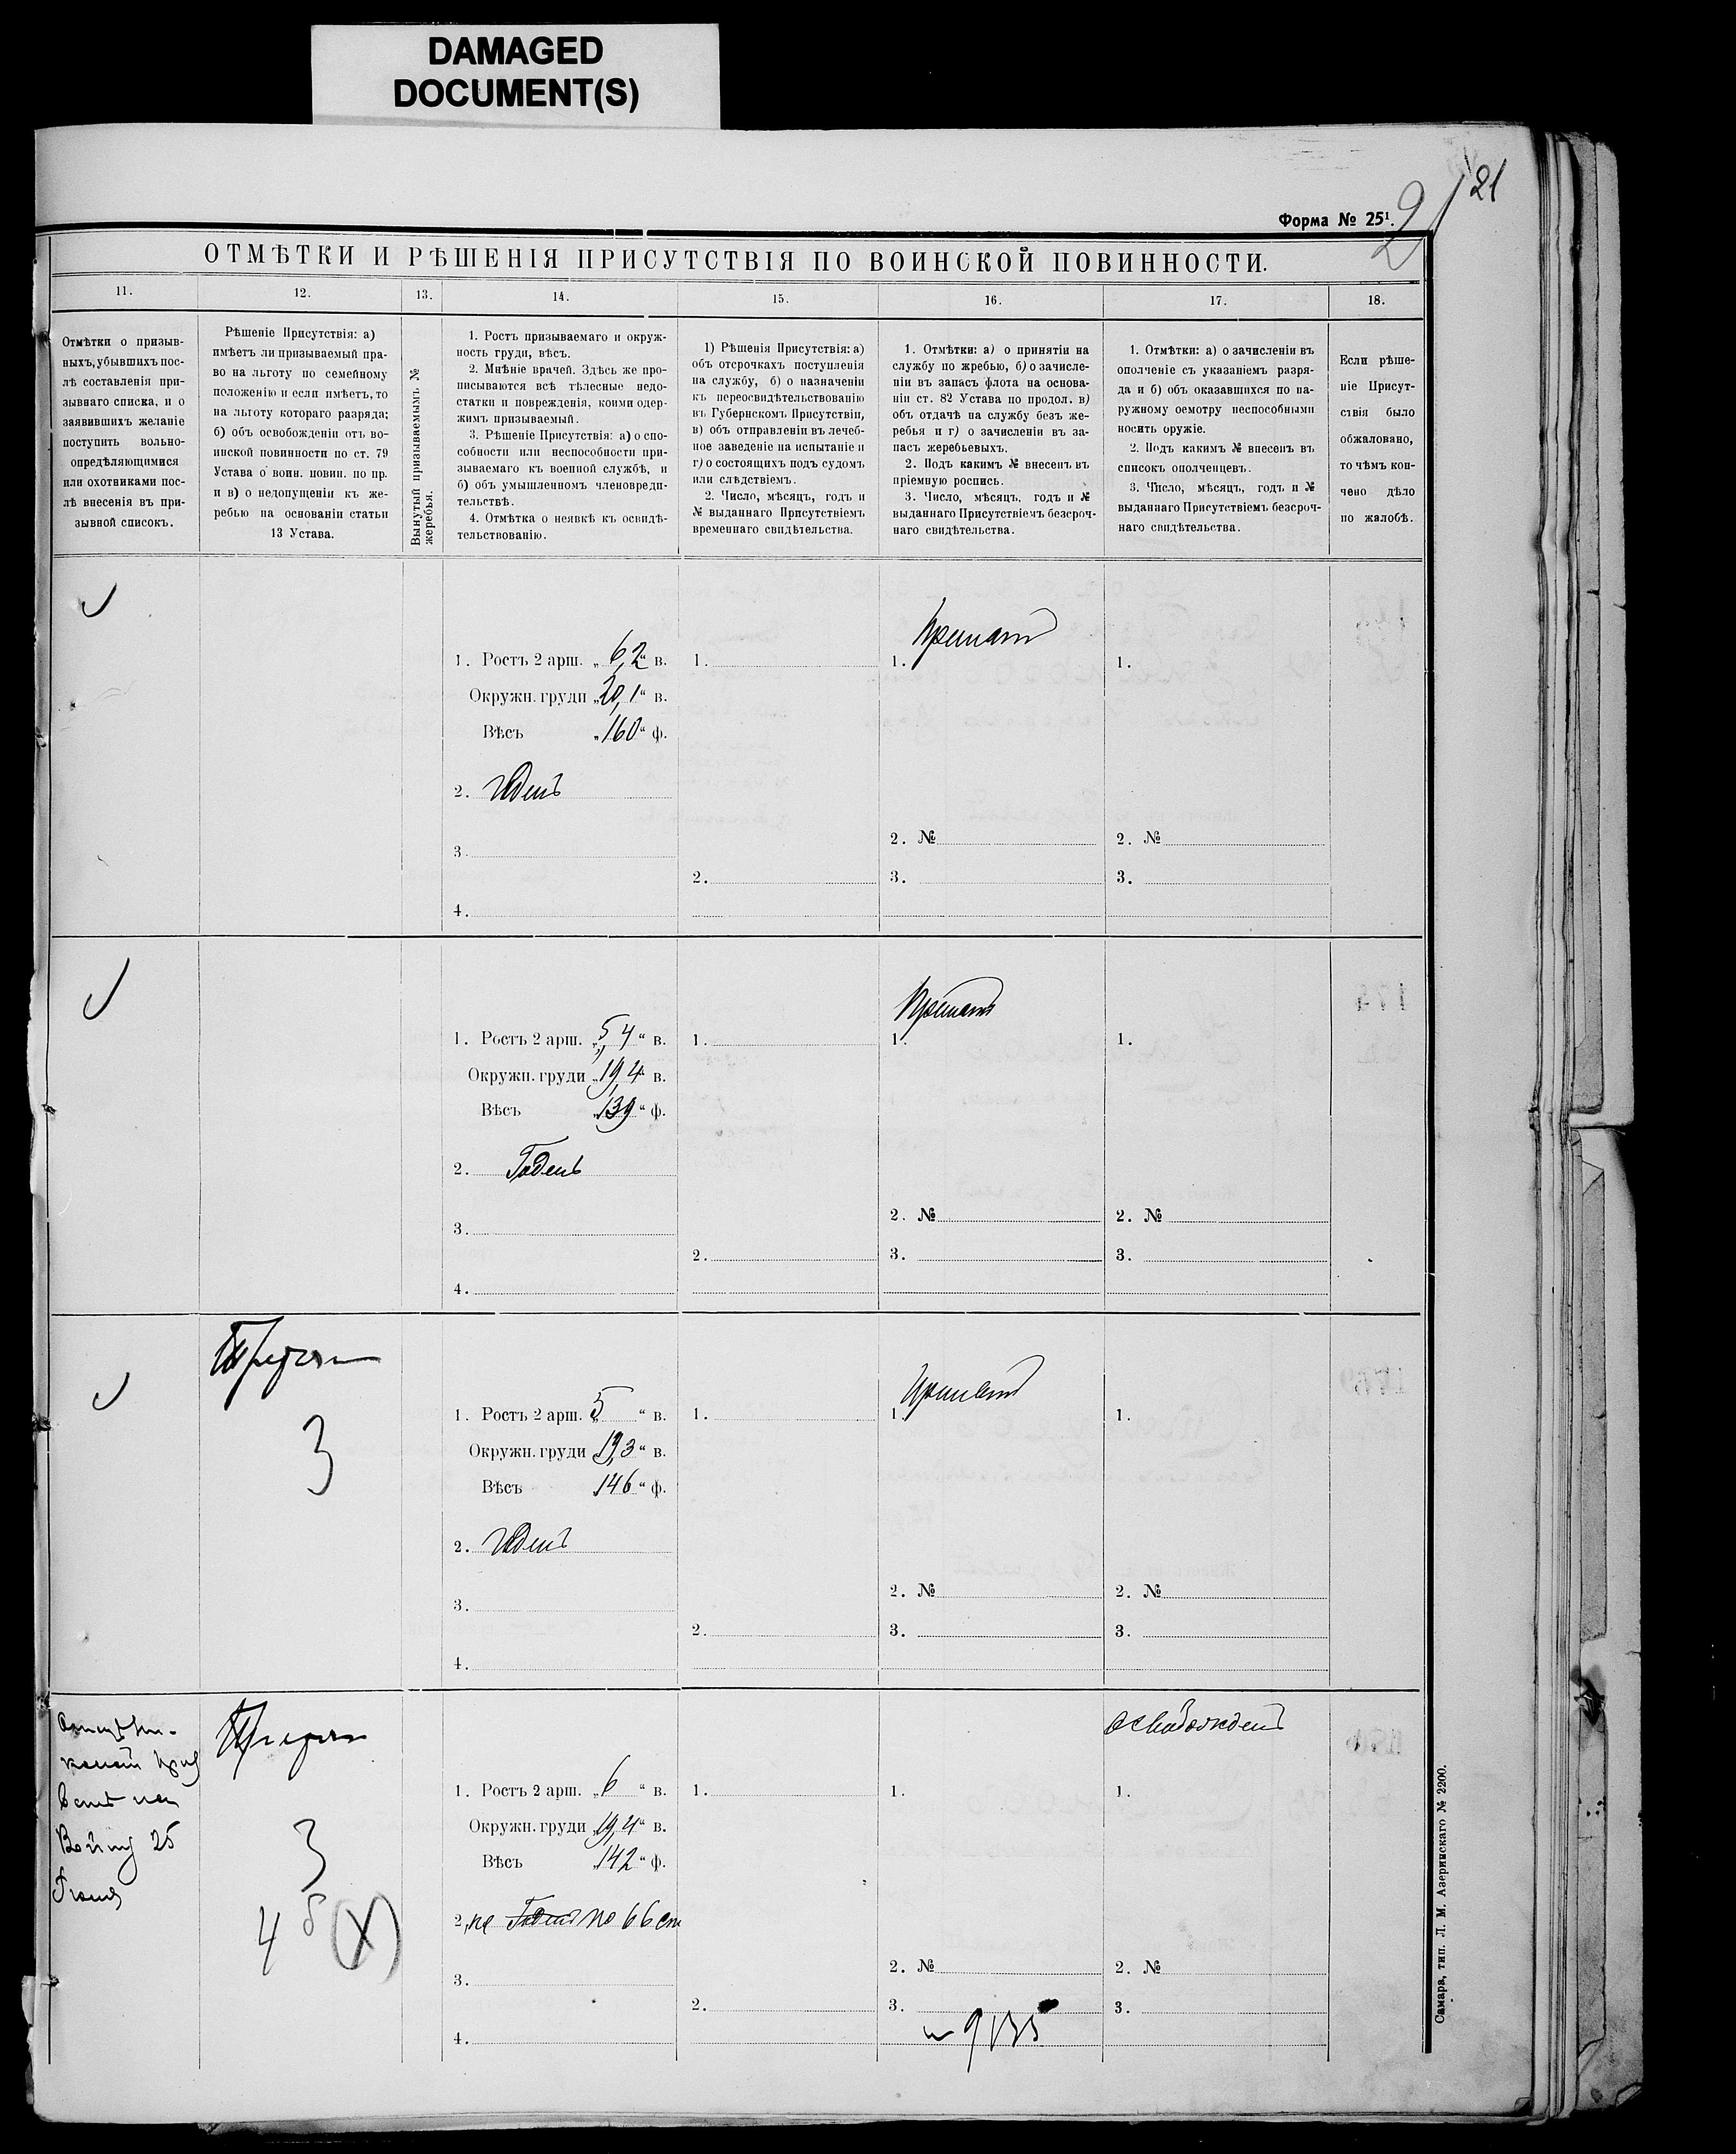 DAMAGED
DOCUMENT(S)
21
21
Форма № 25¹.
ОТМѢТКИ И РѢШЕНІЯ ПРИСУТСТВІЯ ПО ВОИНСКОЙ ПОВИННОСТИ.
11.
12.
13.
14.
15.
16.
17.
18.
Отмѣтки о призыв-
ныхъ, убывшихъ пос-
лѣ составленія при-
зывнаго списка, и о
заявившихъ желаніе
поступить вольно-
опредѣляющимися
или охотниками пос-
лѣ внесенія въ при-
зывной списокъ.
Рѣшеніе Присутствія: а)
имѣетъ ли призываемый пра-
во на льготу по семейному
положенію и если имѣетъ, то
на льготу котораго разряда;
б) объ освобожденіи отъ во-
инской повинности по ст. 79
Устава о воин. повин. по пр.
и в) о недопущеніи къ же-
ребью на основаніи статьи
13 Устава.
Вынутый призываемымъ №
жеребья.
1. Ростъ призываемаго и окруж-
ность груди, вѣсъ.
2. Мнѣніе врачей. Здѣсь же про-
писываются всѣ тѣлесные недо-
статки и поврежденія, коими одер-
жимъ призываемый.
3. Рѣшеніе Присутствія: а) о спо-
собности или неспособности при-
зываемаго къ военной службѣ, и
б) объ умышленномъ членовреди-
тельствѣ.
4. Отмѣтка о неявкѣ къ освидѣ-
тельствованію.
1) Рѣшенія Присутствія: а)
объ отсрочкахъ поступленія
на службу, б) о назначеніи
къ переосвидѣтельствованію
въ Губернскомъ Присутствіи,
в) объ отправленіи въ лечеб-
ное заведеніе на испытаніе и
г) о состоящихъ подъ судомъ
или слѣдствіемъ.
2. Число, мѣсяцъ, годъ и
№ выданнаго Присутствіемъ
временнаго свидѣтельства.
1. Отмѣтки: а) о принятіи на
службу по жребью, б) о зачисле-
ніи въ запасъ флота на основа-
ніи ст. 82 Устава по продол. в)
объ отдачѣ на службу безъ же-
ребья и г) о зачисленіи въ за-
пасъ жеребьевыхъ.
2. Подъ какимъ № внесенъ въ
пріемную роспись.
3. Число, мѣсяцъ, годъ и №
выданнаго Присутствіемъ безсроч-
наго свидѣтельства.
1. Отмѣтки: а) о зачисленіи въ
ополченіе съ указаніемъ разря-
да и б) объ оказавшихся по на-
ружному осмотру неспособными
носить оружіе.
2. Подъ какимъ № внесенъ въ
списокъ ополченцевъ.
3. Число, мѣсяцъ, годъ и №
выданнаго Присутствіемъ безсроч-
наго свидѣтельства.
Если рѣше-
ніе Присут-
ствія было
обжаловано,
то чѣмъ кон-
чено дѣло
по жалобѣ.
Принятъ
1. Ростъ 2 арш. „6,2“ в. 1. 1. 1.
Окружн. груди „20,1“ в.
Вѣсъ „160“ ф.
2. Годенъ
2. № 2. №
3.
2. 3. 3.
4.
Принятъ
1. Ростъ 2 арш. „5,4“ в. 1. 1. 1.
Окружн. груди „19,4“ в.
Вѣсъ „139“ ф.
2. Годенъ
2. № 2. №
3.
2. 3. 3.
4.
3
Принятъ
1. Ростъ 2 арш. „5“ в. 1. 1. 1.
Окружн. груди „19,3“ в.
Вѣсъ 146“ ф.
2. Годенъ
2. № 2. №
3.
2. 3. 3.
4.
25
3
4 б (X)
освобожденъ
1. Ростъ 2 арш. „6“ в. 1. 1. 1.
Окружн. груди „19,4“ в.
Вѣсъ „142“ ф.
2. не Годенъ по 66 ст
2. № 2. №
3.
2. 3. 3.
4.
№ 9135
Самара, тип. Л. М. Азеринскаго № 2200.